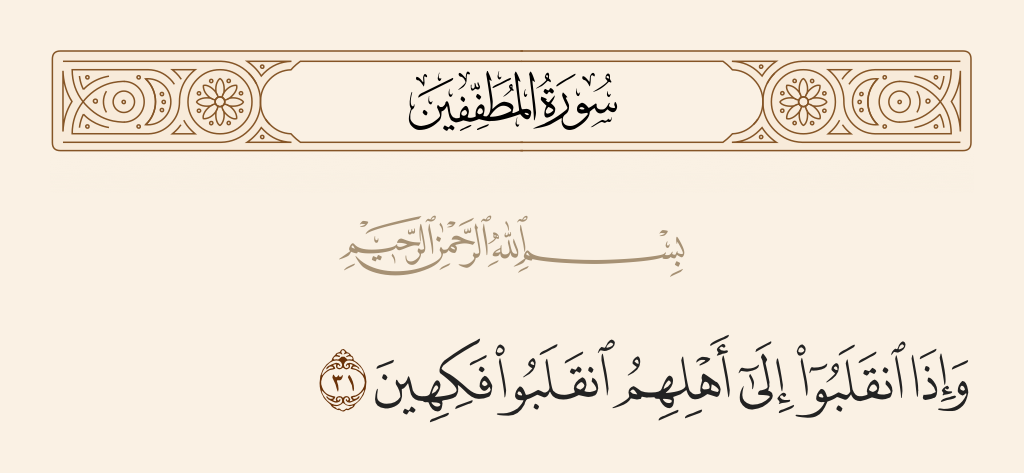 سُورَةُ المُطَفِّفِينَ
بِسْمِ ٱللَّهِ ٱلرَّحْمَٰنِ ٱلرَّحِيمِ
وَإِذَا ٱنقَلَبُوٓا۟ إِلَىٰٓ أَهْلِهِمُ ٱنقَلَبُوا۟ فَكِهِينَ ٣١